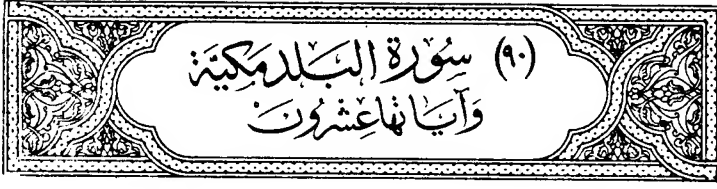 (٩٠) سُورَة البَلد مَكيَّة
وَآيَاتهَا عِشرُونَ